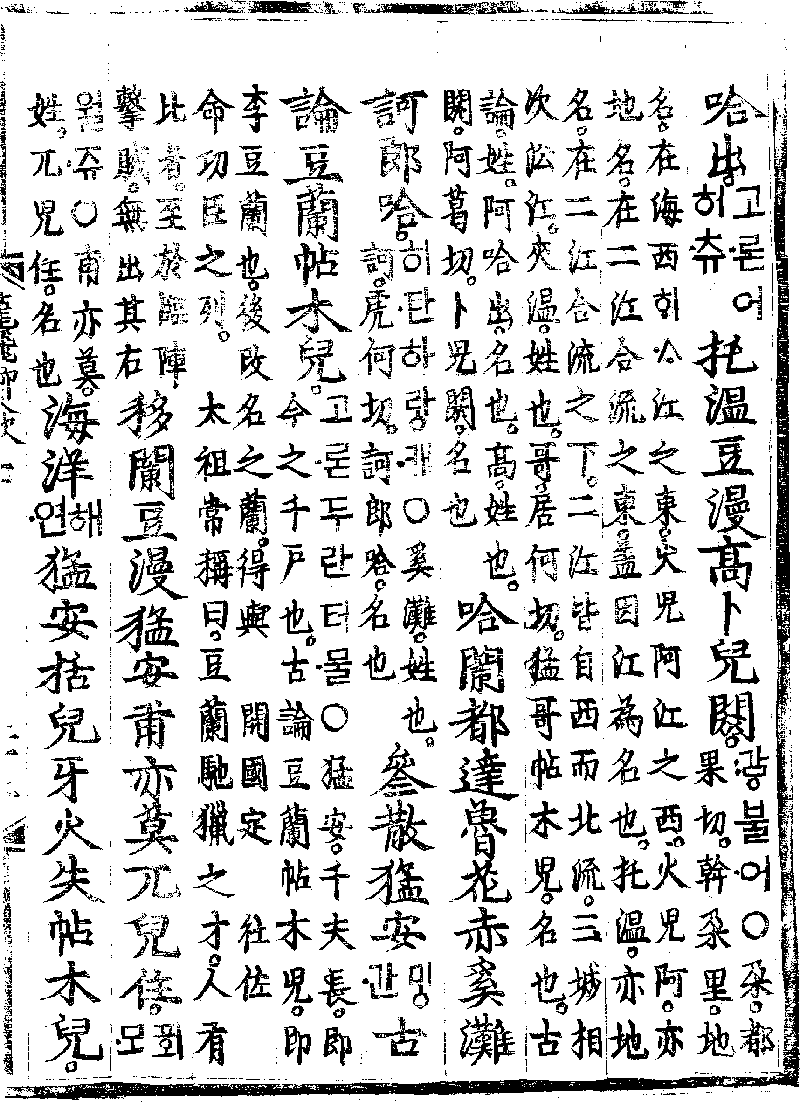 哈出
고·론어
히·츄
托溫豆漫高卜兒閼
:갛불·어○朶。都
果切。斡朶里。地
名。在海西江之東。火兒阿江之西。火兒阿。亦
地名。在二江合流之東。盖因江為名也。托溫。亦地
名。在二江合流之下。二江皆自西而北流。三城相
次㳂江。夾溫。姓也。哥。居何切。猛哥帖木兒。名也。古
論。姓。阿哈出。名也。高。姓也。
閼。阿葛切。卜兒閼。名也
哈闌都達魯花赤奚灘
訶郎哈。
히·탄하랑·캐○奚灘。姓也。
訶。虎何切。訶郎哈。名也
參散猛安
밍
·간
古
論豆蘭帖木兒。
고·론두란터·물○猛安。千夫長。即
今之千戶也。古論豆蘭帖木兒。即
李豆蘭也。後改名之蘭。得與 開國定 社佐
命功臣之列。 太祖常稱曰。豆蘭馳獵之才。人有
比者。至於臨陣
擊賊。無出其右
移闌豆漫猛安甫亦莫兀兒住。
회
·모
월·쥬○甫亦莫。
姓。兀兒住。名也
海洋
해
·연
猛安括兒牙火失帖木兒。